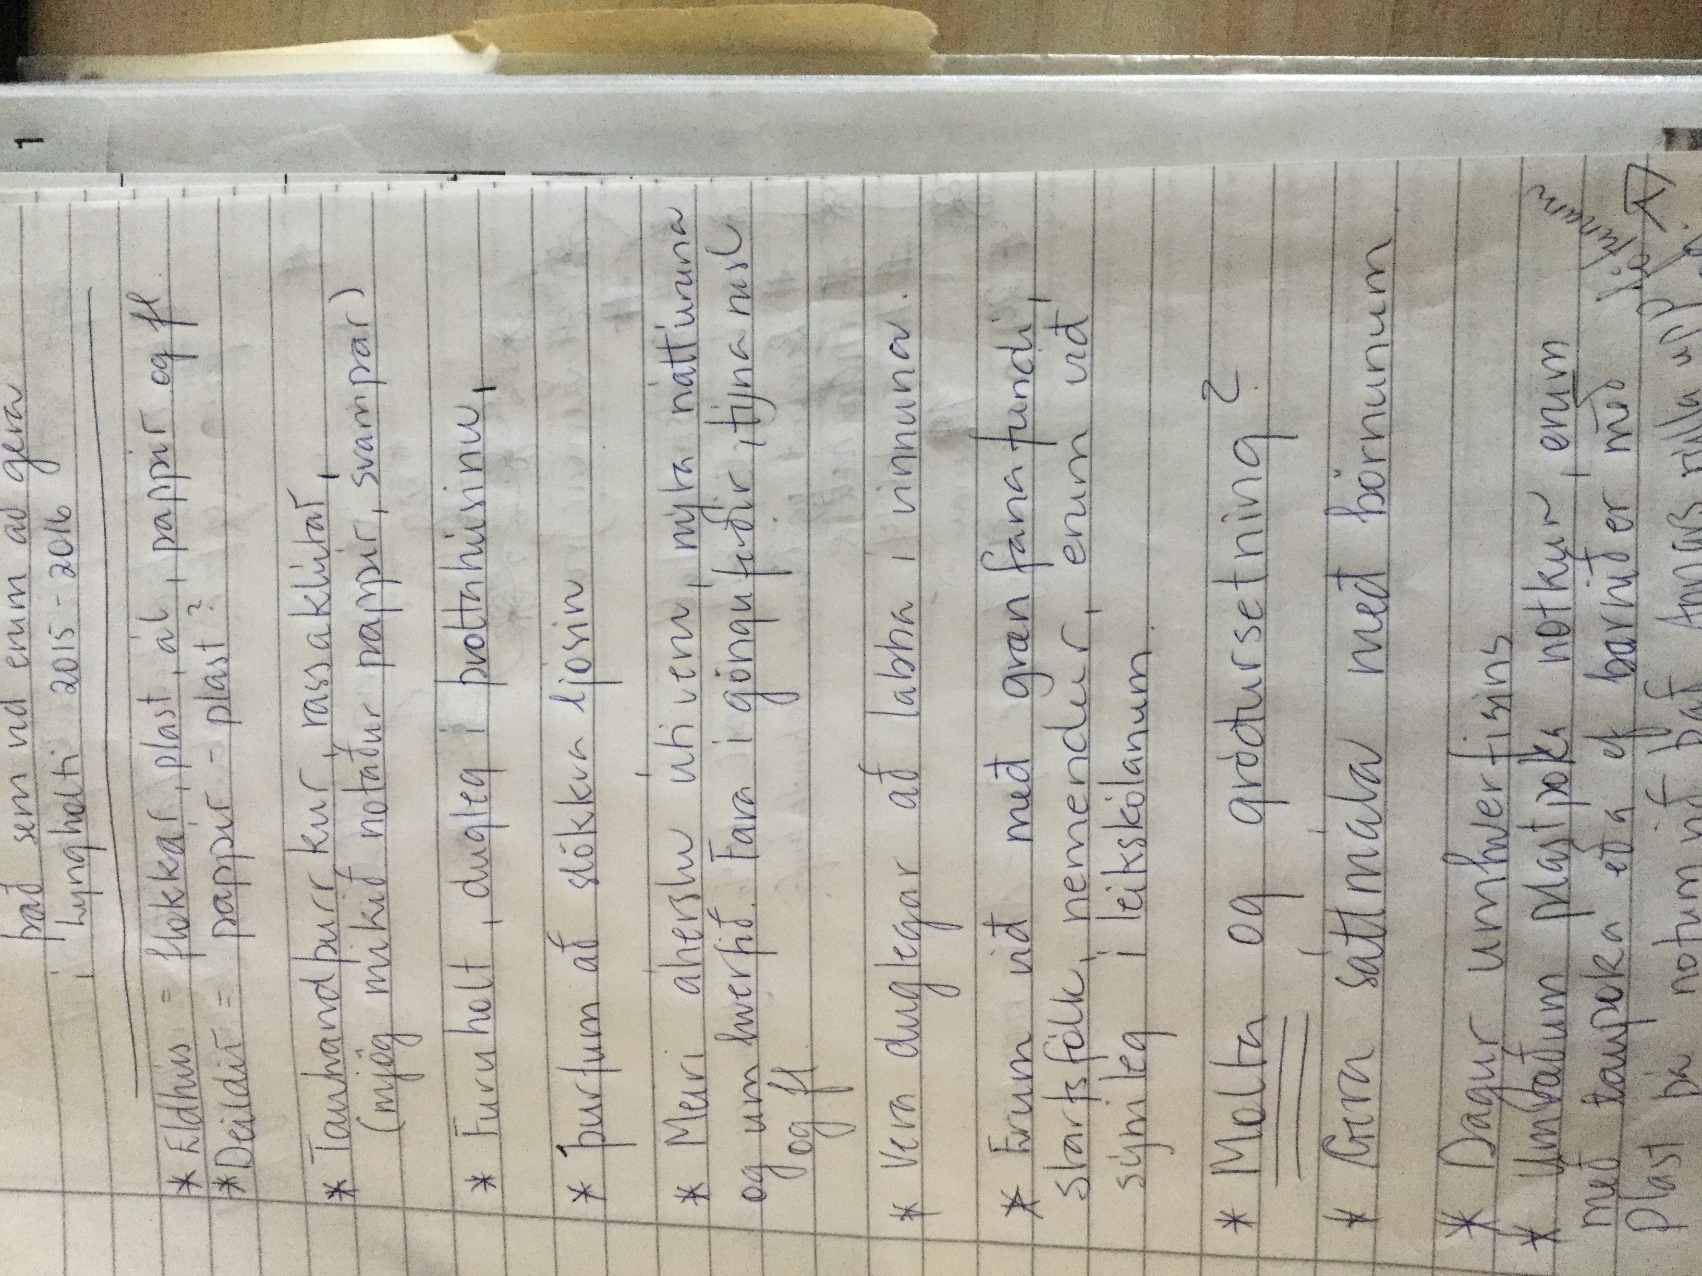 það sem við erum að gera
í Lyngholti 2015-2016
* Eldhús = flokkar, plast, ál, pappír og fl
* Deildir = pappír - plast?
* Tauhandþurrkur, rassaklútar,
(mjög mikið notaður pappír, svampar)
* Furuholt, dugleg í þvottahúsinu,
* þurfum að slökkva ljósin
* Meiri áherslu útiveru, nýta náttúruna
og umhverfið. Fara í gönguferðir, týna rusl
og fl
* Vera duglegar að labba í vinnuna.
* Erum við með grænfánafundi,
starfsfólk, nemendur, erum við
sýnileg í leikskólanum.
* Molta og gróðursetning?
* Gera sáttmála með börnunum
* Dagur umhverfisins
* Umræðum plastpoka notkun, erum
með taupoka eða ef barnið er með
plast þá notum við það Annars rúlla upp
1